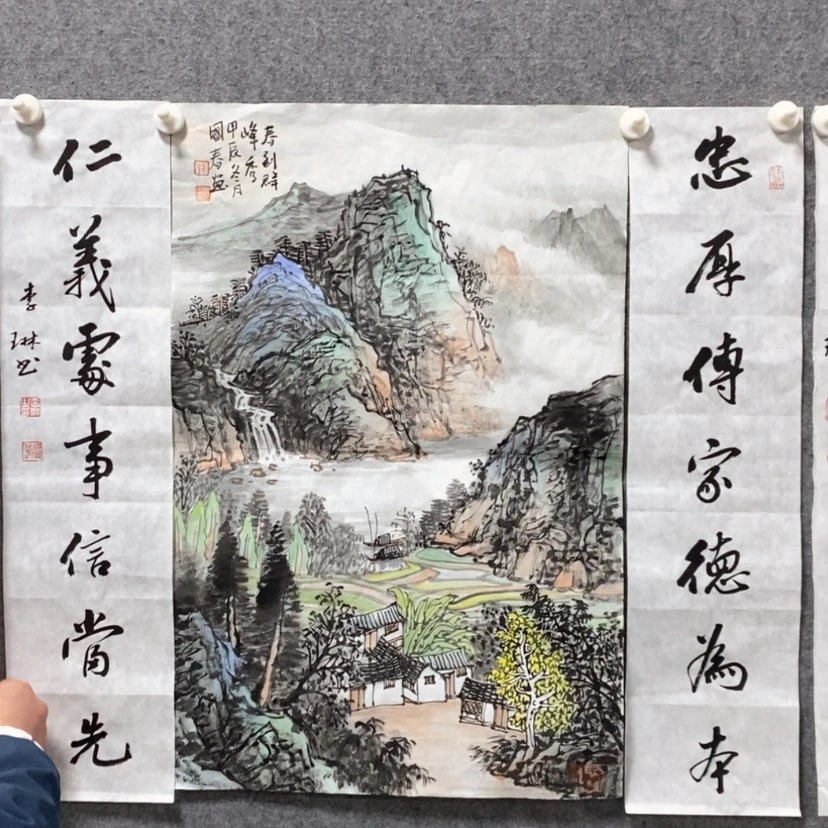 忠厚傳家德為本
春到群
峰秀
甲辰冬月
國春畫
仁義處事信當先
李琳书